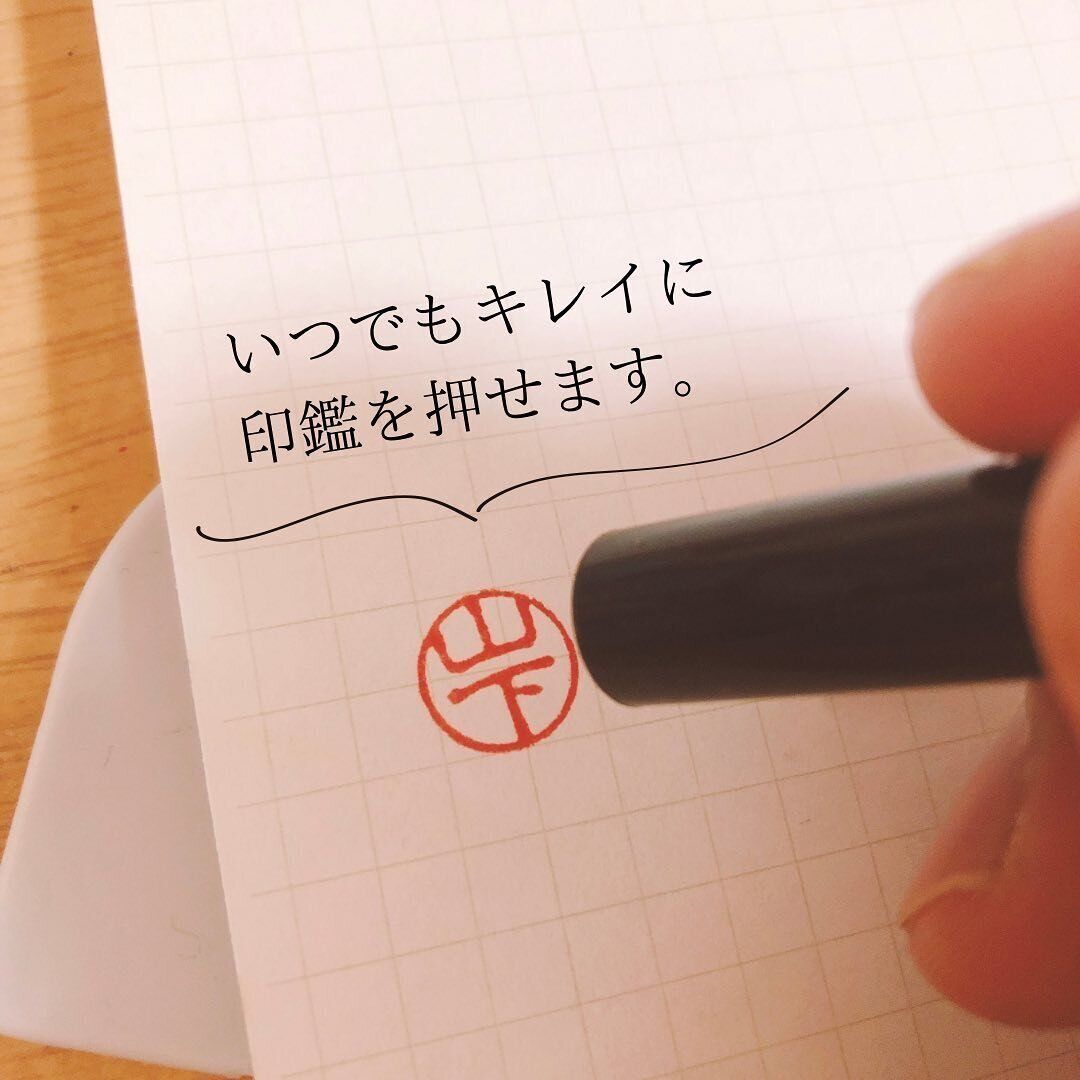 いつでもキレイに
印鑑を押せます。
山下